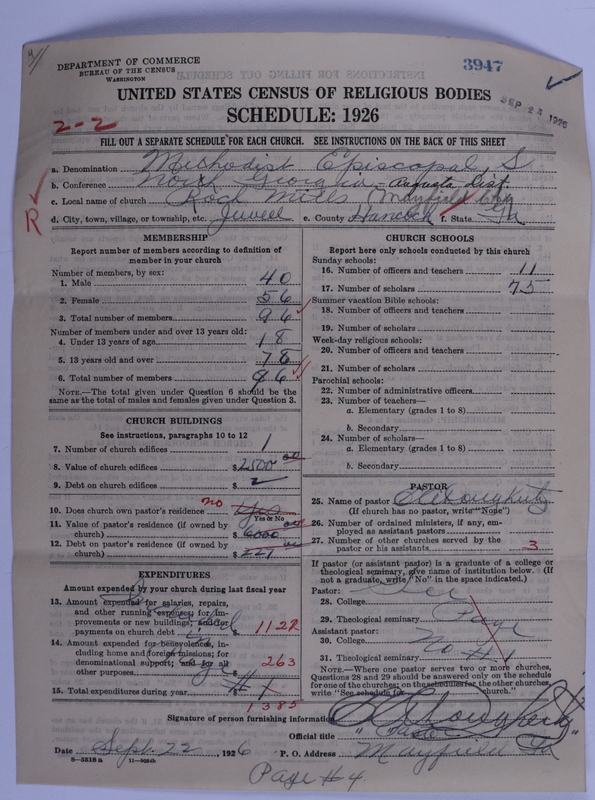 DEPARTMENT OF COMMERCE
BUREAU OF THE CENSUS
WASHINGTON
3947
UNITED STATES CENSUS OF RELIGIOUS BODIES
SEP 24 1926
SCHEDULE: 1926
2-2
FILL OUT A SEPARATE SCHEDULE FOR EACH CHURCH. SEE INSTRUCTIONS ON THE BACK OF THIS SHEET
a. Denomination Methodist Episcopal, S
b. Conference North Georgia - Augusta Dist.
c. Local name of church Rock Mills Mayfield Chg
R
d. City, town, village, or township, etc. Jewell e. County Hancock f. State Ga
MEMBERSHIP
Report number of members according to definition of
member in your church
Number of members, by sex:
1. Male 40
2. Female 56
3. Total number of members 96
Number of members under and over 13 years old:
4. Under 13 years of age 18
5. 13 years old and over 78
6. Total number of members 96
NOTE.—The total given under Question 6 should be the
same as the total of males and females given under Question 3.
CHURCH BUILDINGS
See instructions, paragraphs 10 to 12
7. Number of church edifices 1
8. Value of church edifices $2500 00
9. Debt on church edifices $
10. Does church own pastor's residence no Yes
Yes or No
11. Value of pastor's residence (if owned by
church) $6000
12. Debt on pastor's residence (if owned by
church) $221
EXPENDITURES
Amount expended by your church during last fiscal year
13. Amount expended for salaries, repairs,
and other running expenses; for im-
provements or new buildings; and for
payments on church debt $1122
14. Amount expended for benevolences,
including home and foreign missions; for
denominational support; and for all
other purposes $263
15. Total expenditures during year $
1385
CHURCH SCHOOLS
Report here only schools conducted by this church
Sunday schools:
16. Number of officers and teachers 11
17. Number of scholars 75
Summer vacation Bible schools:
18. Number of officers and teachers
19. Number of scholars
Week-day religious schools:
20. Number of officers and teachers
21. Number of scholars
Parochial schools:
22. Number of administrative officers
23. Number of teachers—
a. Elementary (grades 1 to 8)
b. Secondary
24. Number of scholars—
a. Elementary (grades 1 to 8)
b. Secondary
PASTOR
25. Name of pastor
(If church has no pastor, write "None")
26. Number of ordained ministers, if any, em-
ployed as assistant pastors
27. Number of other churches served by the
pastor or his assistants 3
If pastor (or assistant pastor) is a graduate of a college or
theological seminary, give name of institution below. (If
not a graduate, write "No" in the space indicated.)
Pastor: See
28. College
29. Theological seminary Page
Assistant pastor:
30. College No #1
31. Theological seminary
NOTE.—Where one pastor serves two or more churches,
Questions 28 and 29 should be answered only on the schedule
for one of the churches; on the schedules for the other churches,
write "See schedule for church."
Signature of person furnishing information
Official title " Pastor "
Date Sept. 22, 1926 P. O. Address Mayfield Ga
8-5318 a
Page #4